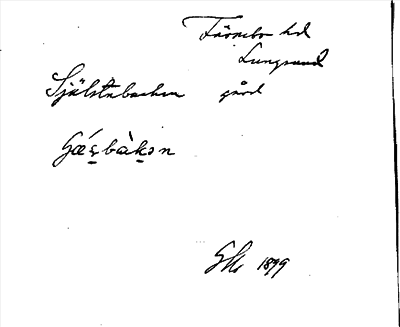 Färnebo hd
Lungsund
Själstabacken gård
Gǽsbàkən
1899